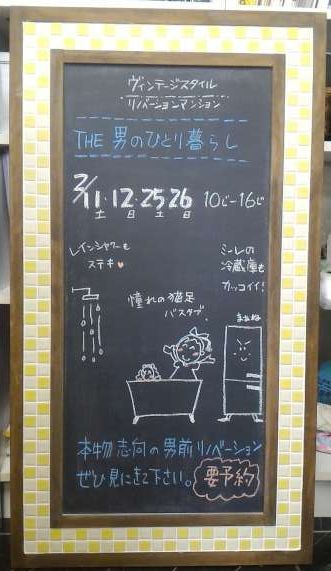 ヴィンテージスタイル
リノベーションマンション
THE 男のひとり暮らし
2/11・12・25 26 10じ-16じ
土 日 土 日
レインシャワーも
ステキ
ミーレの
冷蔵庫も
カッコイイ!
憧れの猫足
バスタブ
まかせろ
本物志向の男前リノベーション
ぜひ見にきて下さい。
要予約